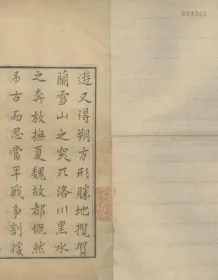 遊又得朔方形勝地攬賀
蘭雪山之突兀洛川黑水
之奔放撫夏魏故都慨然
弔古而思當年戰爭割據